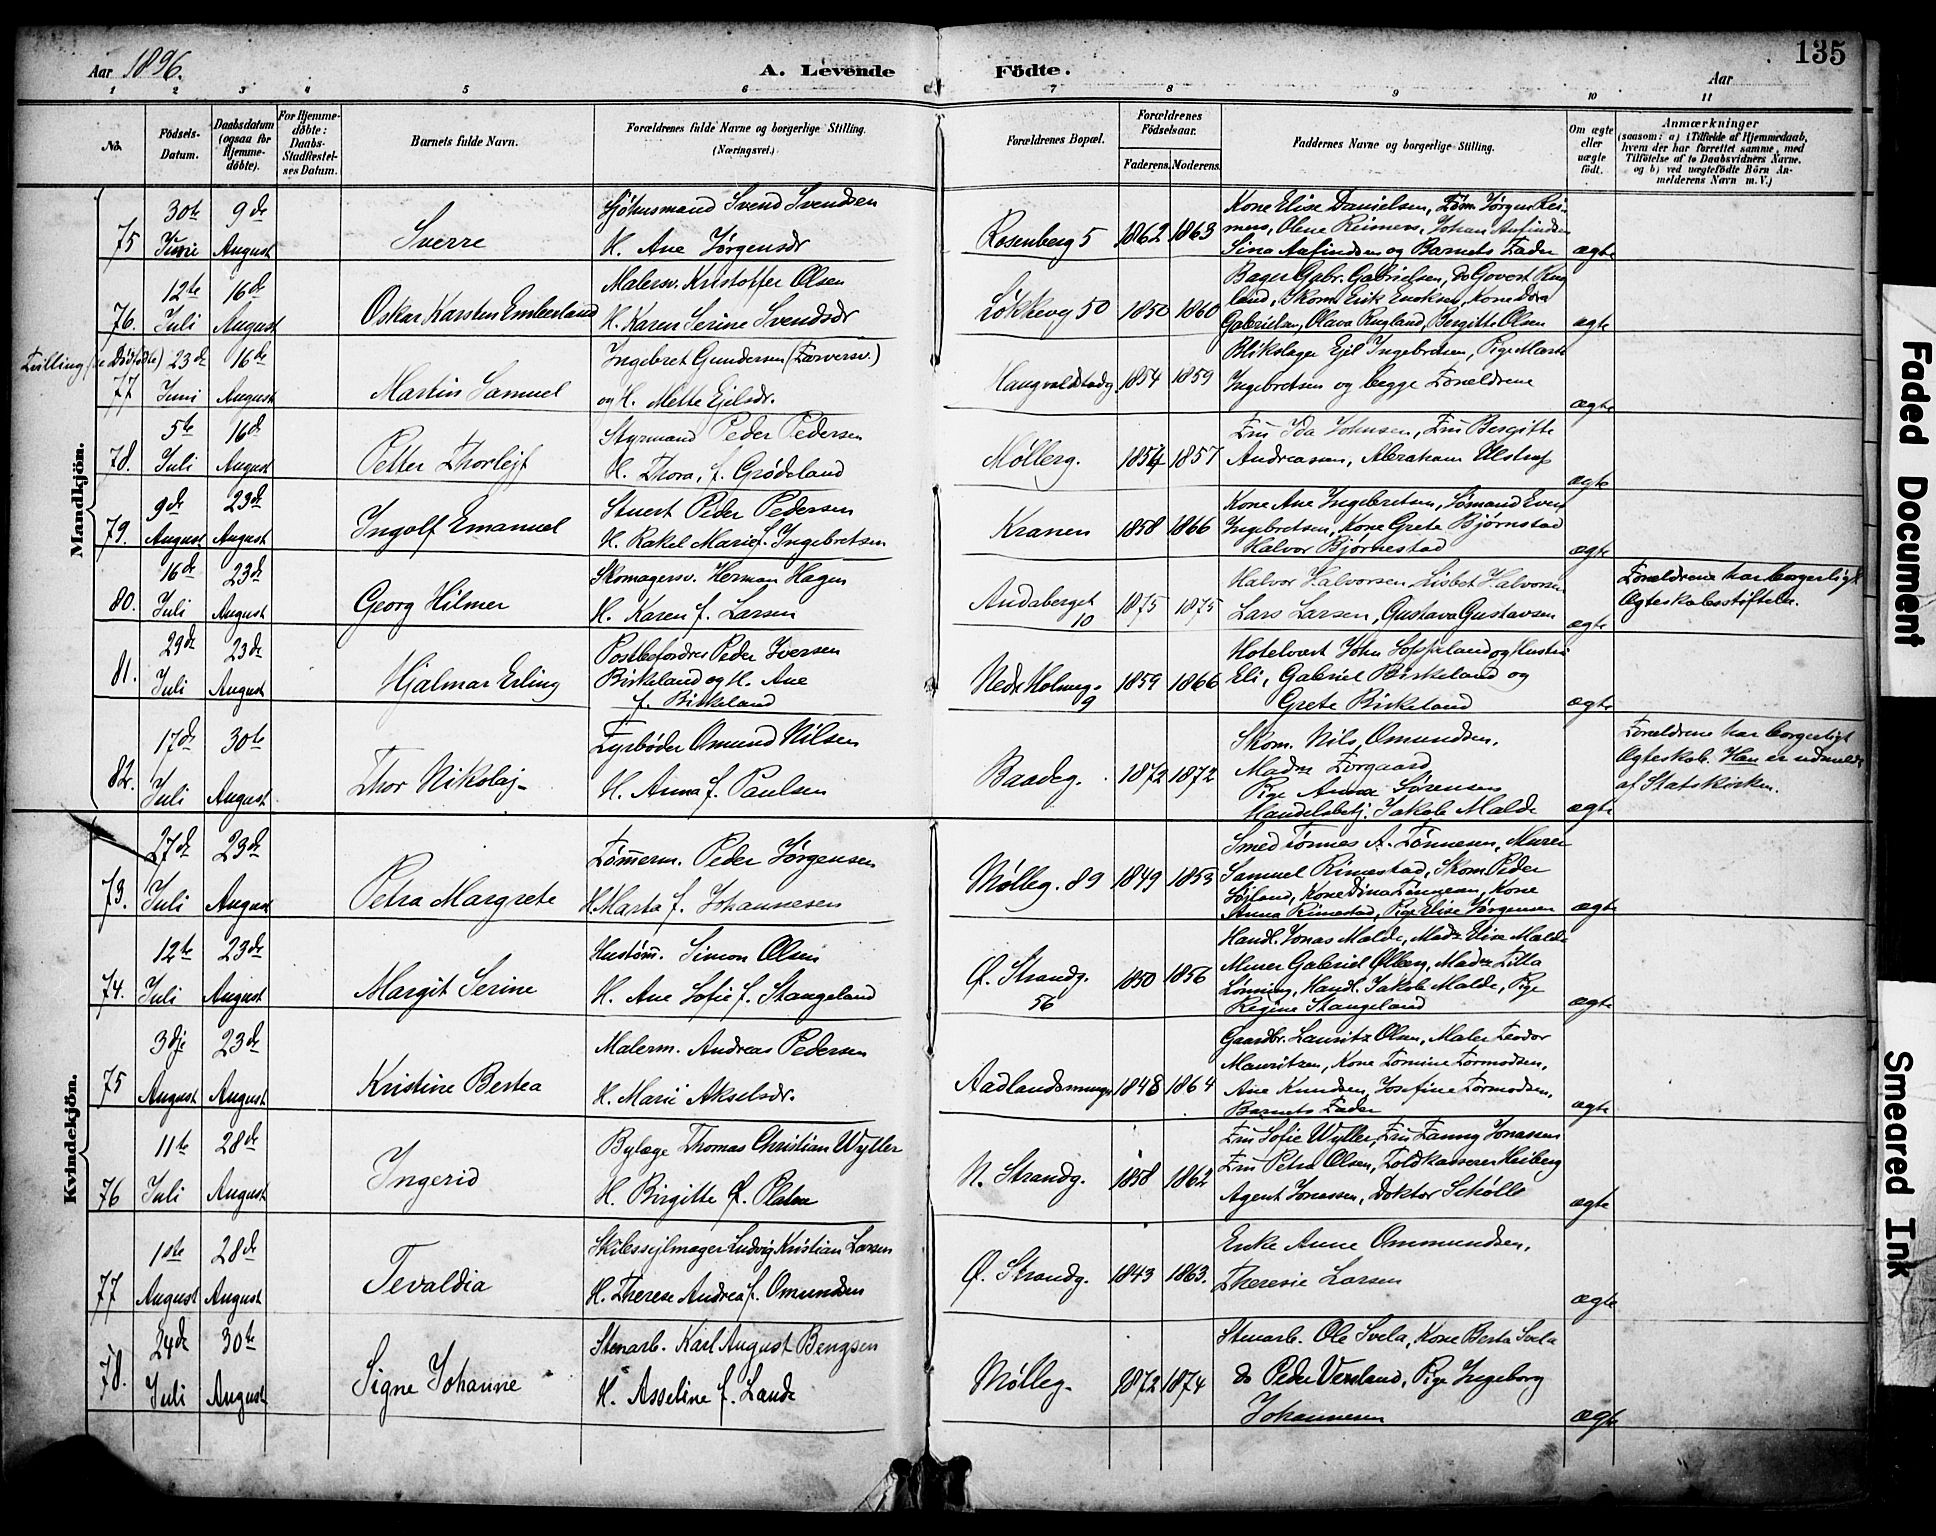 135
Aar 1896.
A. Levende Födte.
Aar
1 2 3 4 5 6 7 8 9 10 11
No.
Födsels-Datum.
Daabsdatum (ogsaa for Hjemmedöbte).
For Hjemmedöbte: Daabs-Stadfæstelses Datum.
Barnets fulde Navn.
Forældrenes fulde Navne og borgerlige Stilling.
(Næringsvei.)
Forældrenes Bopæl.
Forældrenes Födselsaar.
Faderens. Moderens.
Faddernes Navne og borgerlige Stilling.
Om ægte eller uægte födt.
Anmærkninger
(saasom: a) i Tilfælde af Hjemmedaab,
hvem der har forrettet samme, med
Tilföielse af to Daabsvidners Navne.
og b) ved uægtefödte Börn An-
melderens Navn m. V.)
Mandkjön.
75 30te Juni 9de August
Sverre
Sjøhusmand Svend Svendsen
H. Ane Jørgensdr
Rosenberg 5 1862 1863
Kone Elise Danielsen, Tøm. Jørgen Rei-
mers, Olene Reimers, Johan
Sina og Barnets Fader
ægte
76. 12te Juli 16de August
Oskar Karsten Emberland
Malersv. Kristoffer Olsen
H. Karen Serine Svendsdr
Løkkevg 50 1850 1860
Bager Gabr. Gabrielsen, do Govert Rug
land, Skom. Erik Enoksen, Kone Dora
Gabrielsen, Olava Rugland, Bergitte Olsen
ægte
Tvilling
77 23de Juni 16de August
Martin Samuel
Ingebret Gundersen (Farversv.)
og H. Mette Ejelsdr.
Haugvaldstadg. 1854 1859
Blikslager Ejel Ingebretsen, Pige Marta
Ingebretsen og begge Forældrene
ægte
78. 5te Juli 16de August
Petter Thorlejf
Styrmand Peder Pedersen
H. Thora, f. Grødeland
Mølleg. 1854 1857
Fru Ida Johnsen, Fru Bergitte
Andreassen, Abraham Ulstrup
ægte
79. 9de August 23de August
Ingolf Emanuel
Stuert Peder Pedersen
H. Rakel Marie f. Ingebretsen
Kranen 1858 1866
Kone Ane Ingebretsen, Sømand Even
Ingebretsen, Kone Grete Bjørnstad
Halvor Bjørnestad
ægte
80. 16de Juli 23de August
Georg Hilmer
Skomagersv. Herman Hagen
H. Karen f. Larsen
Andaberget 10 1875 1875
Halvor Halvorsen Lisbet Halvorsen
Lars Larsen, Gustava Gustavsen
ægte
Forældrene har borgerligt
Ægteskabsstiftelse.
81. 29de Juli 23de August
Hjalmar Erling
Postbefordrer Peder Iversen
Birkeland og H. Ane
f. Birkeland
Nedre Holmeg. 9 1859 1866
Hotelvært John og Hustru
Eli, Gabriel Birkeland og
Grete Birkeland
ægte
82. 17de Juli 30te August
Thor Nikolaj-
Fyrbøder Omund Nilsen
H. Anna f. Paulsen
Baadeg. 1872 1872
Skom. Nils Omundsen,
Madm Torgaard
Pige Anna Sørensen
Handelsbetj. Jakob Malde
ægte
Forældrene har borgerligt
Ægteskab. Han er udmeldt
af Statskirken.
Kvindekjön.
73. 27de Juli 23de August
Petra Margrete
Tømmerm. Peder Jørgensen
H. Marta f. Johannesen
Mølleg. 89 1849 1853
Smed Tønnes A. Tønnesen, Murer
Samuel Rimestad, Skom Peder
Søiland, Kone Dina Tønnesen, Kone
Anna Rimestad, Pige Elise Jørgensen
ægte
74. 12te Juli 23de August
Margit Serine
Hustøm. Simon Olsen
H. Ane Sofie f. Stangeland
Ø. Strandg. 56 1850 1856
Handl. Jonas Malde, Madm Elise Malde
Murer Gabriel Ølberg, Madm Tilla
Lønning, Handl. Jakob Malde, Pige
Regine Stangeland
ægte
75 3dje August 23de August
Kristine Bertea
Malerm. Andreas Pedersen
H. Marie Akselsdr.
Aadlandsmueg 1848 1864
Gaardbr. Lauritz Olsen, Maler Teodor
Mauritzen, Kone Tomine Tormodsen,
Ane Knudsen, Josefine Tormodsen,
Barnets Fader
ægte
76 11te Juli 28de August
Ingerid
Bylæge Thomas Christian Wyller
H. Birgitte f. Platou
N. Strandg. 1858 1862
Fru Sofie Wyller, Fru Fanny Jonassen
Fru Petra Olsen, Toldkasserer Heiberg
Agent Jonassen, Doktor Schiøll
ægte
77 1ste August 28de August
Tevaldia
Skibssejlmager Ludvig Kristian Larsen
H. Therese Andrea f. Omundsen
Ø. Strandg. 1843 1863.
Enke Anne Ommundsen,
Theresie Larsen
ægte
78. 24de Juli 30te August
Signe Johanne
Stenarb. Karl August Bengsen
H. Asseline f. Lande
Mølleg. 1872 1874
Stenarb. Ole Svela, Kone Berta Svela
do Peder Versland, Pige Ingeborg
Johannesen
ægte
Faded Document
Smeared Ink